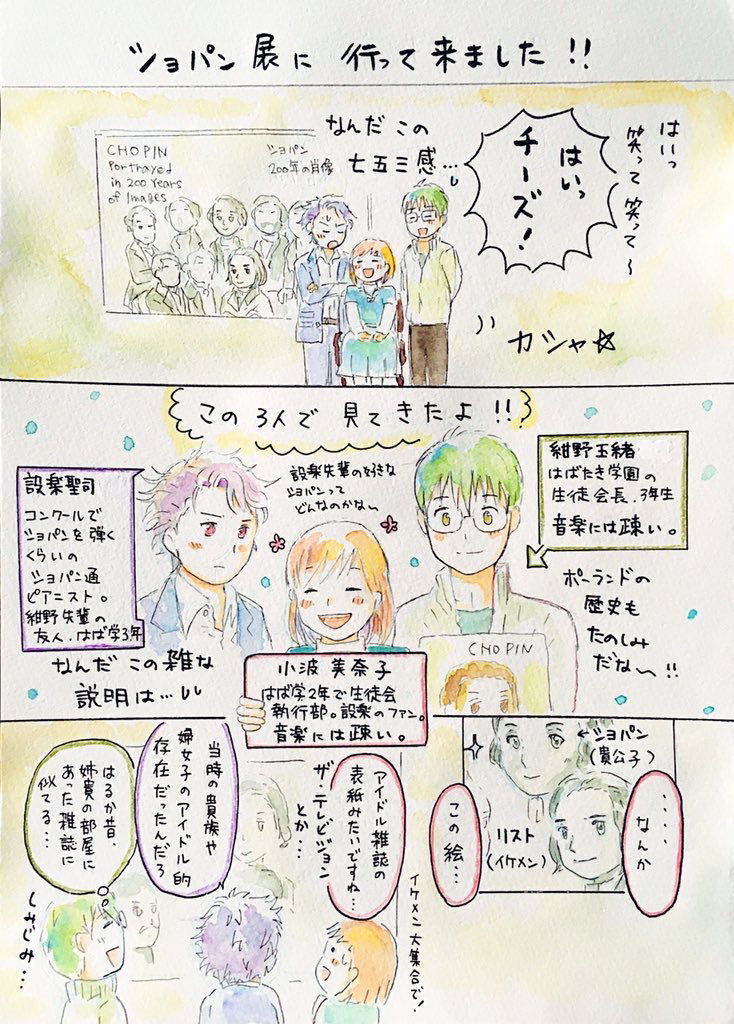 ショパン展に 行って来ました!!
はいっ
笑って笑って〜
はいっ
チーズ!
なんだ この
七五三感…
CHOPIN
Portrayed
in 200 Years
of Images
ショパン
200年の肖像
カシャ☆
この3人で 見てきたよ!!
紺野玉緒
はばたき学園の
生徒会長、3年生
音楽には疎い。
設楽先輩の好きな
ショパンって
どんなのかな〜
設楽聖司
コンクールで
ショパンを弾く
くらいの
ショパン通
ピアニスト。
紺野先輩の
友人。はば学3年
ポーランドの
歴史も
たのしみ
だな〜!!
CHOPIN
なんだ この雑な
説明は…
小波 美奈子
はば学2年で生徒会
執行部。設楽のファン。
音楽には疎い。
←ショパン
(貴公子)
リスト
(イケメン)
・・・・なんか
この絵…
アイドル雑誌の
表紙みたいですね…
ザ・テレビジョン
とか…
イケメン大集合で!
当時の貴族や
婦女子のアイドル的
存在だったんだろ
はるか昔、
姉貴の部屋に
あった雑誌に
似てる…
しみじみ…